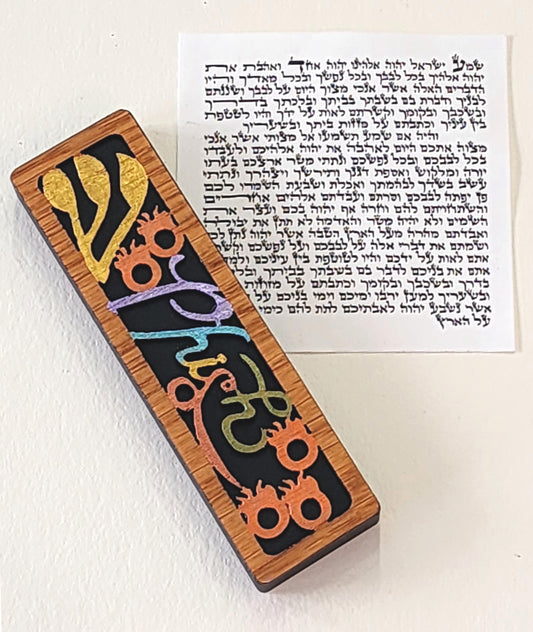 שמע ישראל יהוה אלהינו יהוה אחד ואהבת את
יהוה אלהיך בכל לבבך ובכל נפשך ובכל מאדך והיו
הדברים האלה אשר אנכי מצוך היום על לבבך ושננתם
לבניך ודברת בם בשבתך בביתך ובלכתך בדרך
ובשכבך ובקומך וקשרתם לאות על ידך והיו לטטפת
בין עיניך וכתבתם על מזזות ביתך ובשעריך
והיה אם שמע תשמעו אל מצותי אשר אנכי
מצוה אתכם היום לאהבה את יהוה אלהיכם ולעבדו
בכל לבבכם ובכל נפשכם ונתתי מטר ארצכם בעתו
יורה ומלקוש ואספת דגנך ותירשך ויצהרך ונתתי
עשב בשדך לבהמתך ואכלת ושבעת השמרו לכם
פן יפתה לבבכם וסרתם ועבדתם אלהים אחרים
והשתחויתם להם וחרה אף יהוה בכם ועצר את
השמים ולא יהיה מטר והאדמה לא תתן את יבולה
ואבדתם מהרה מעל הארץ הטבה אשר יהוה נתן
ושמתם את דברי אלה על לבבכם ועל נפשכם
אתם לאות על ידכם והיו לטוטפת בין עיניכם
אתם את בניכם לדבר בם בשבתך בביתך
בדרך ובשכבך ובקומך וכתבתם על
ובשעריך למען ירבו ימיכם וימי בניכם על
אשר נשבע יהוה לאבתיכם לתת להם כימי
על הארץ
ש